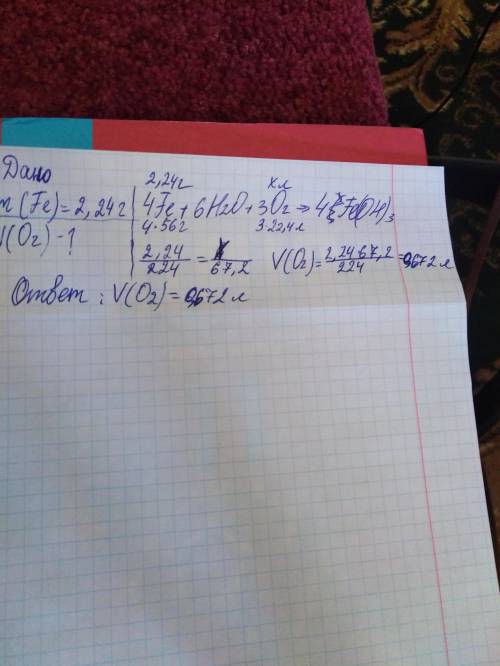 Дано
m(Fe)=2,24г
V(O2)-?
2,24г хл
4Fe+6H2O+3O2→4Fe(OH)3
4·56г 3·22,4л
2,24/224 = х/67,2 V(O2)=2,24·67,2/224=0,672л
Ответ: V(O2)=0,672л